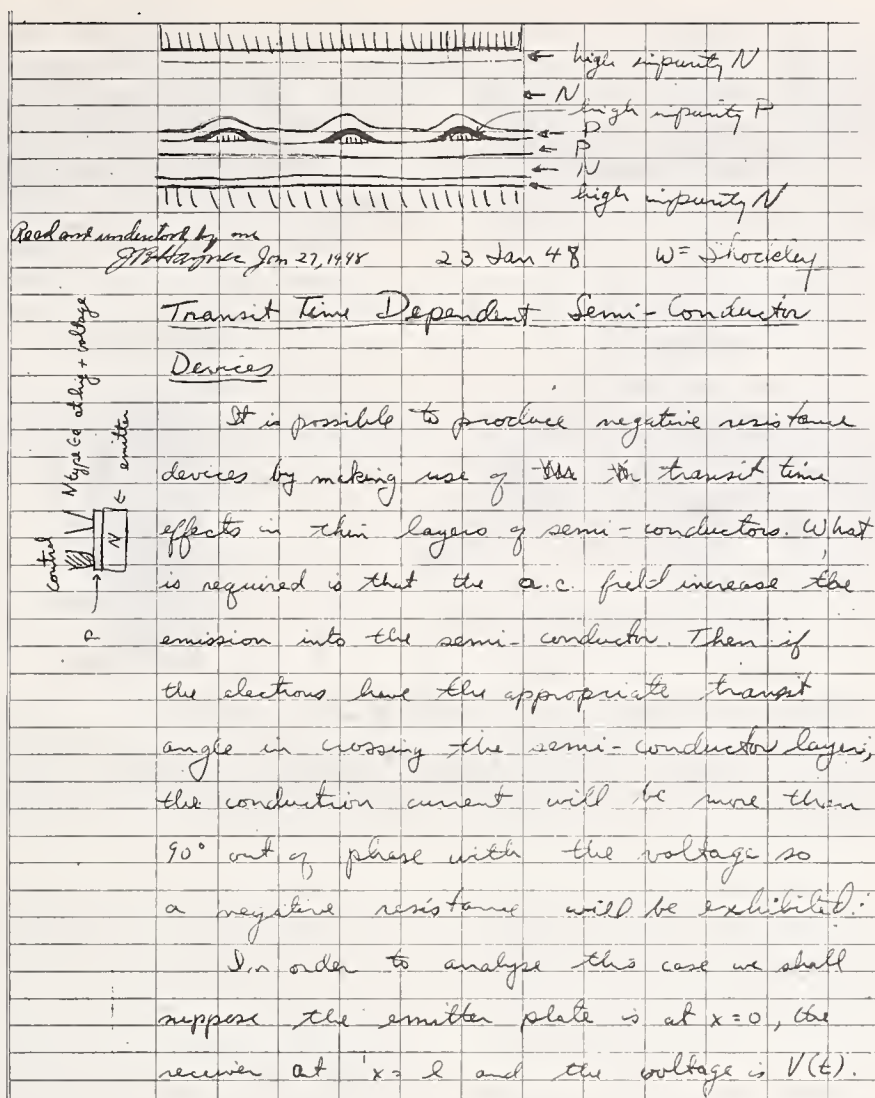 ← high impurity N
← N
high impurity P
← P
← P
← N
← high impurity N
Read and understood by me
Jan 27, 1948
23 Jan 48 W= Shockley
Transit Time Dependent Semi-Conductor
Devices
control
N type Ge at hig + voltage
← emitter
N
It is possible to produce negative resistance
devices by making use of transit time
effects in thin layers of semi-conductors. What
is required is that the a.c. field increase the
emission into the semi-conductor. Then if
the electrons have the appropriate transit
angle in crossing the semi-conductor layers,
the conduction current will be more than
90° out of phase with the voltage so
a negative resistance will be exhibited.
In order to analyse this case we shall
suppose the emitter plate is at x=0, the
receiver at x=l and the voltage is V(t).